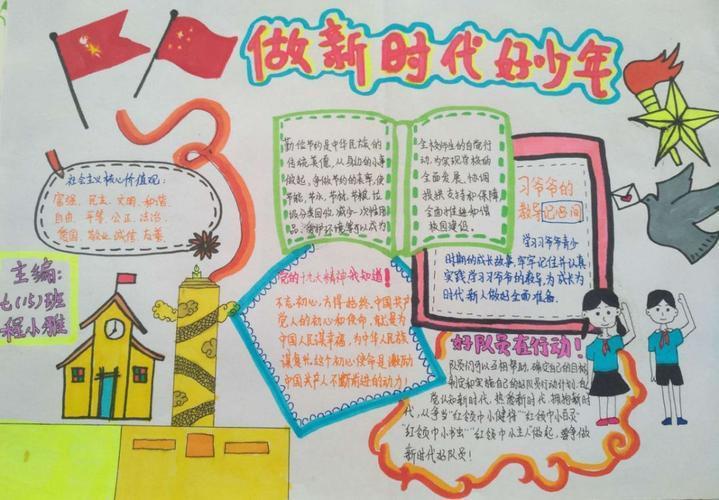 做新时代好少年
社会主义核心价值观:
富强、民主、文明、和谐、
自由、平等、公正、法治、
爱国、敬业、诚信、友善、
主编:
七(15)班
程小雅
勤俭节约是中华民族的
传统美德,从身边的小事
做起,争做节约的表率,使
节能,节水,节材,节粮,垃
圾分类回收,减少一次性用
品,爱护环境等可以成为
全校师生的自觉行
动,为实现学校的
全面发展、协调
提供支持和保障,
全面推进和谐
校园建设。
习爷爷的
教导记心间
学习习爷爷青少
时期的成长故事,牢牢记住并认真
实践学习习爷爷的教导,为成长为
时代新人做好全面准备。
党的十九大精神我知道!
不忘初心,方得始终,中国共产
党人的初心和使命,就是为
中国人民谋幸福,为中华人民族
谋复兴,这个初心使命是激励
中国共产人不断前进的动力!
好队员在行动!
队员们可以互相帮助,确定自己的目标,
制定和实施自己的好队员行动计划,自
觉认知新时代,热爱新时代,拥抱新时
代,从争当“红领巾小健将”“红领巾小百灵”
“红领巾小书虫”“红领巾小主人”做起,当争做
新时代好队员!